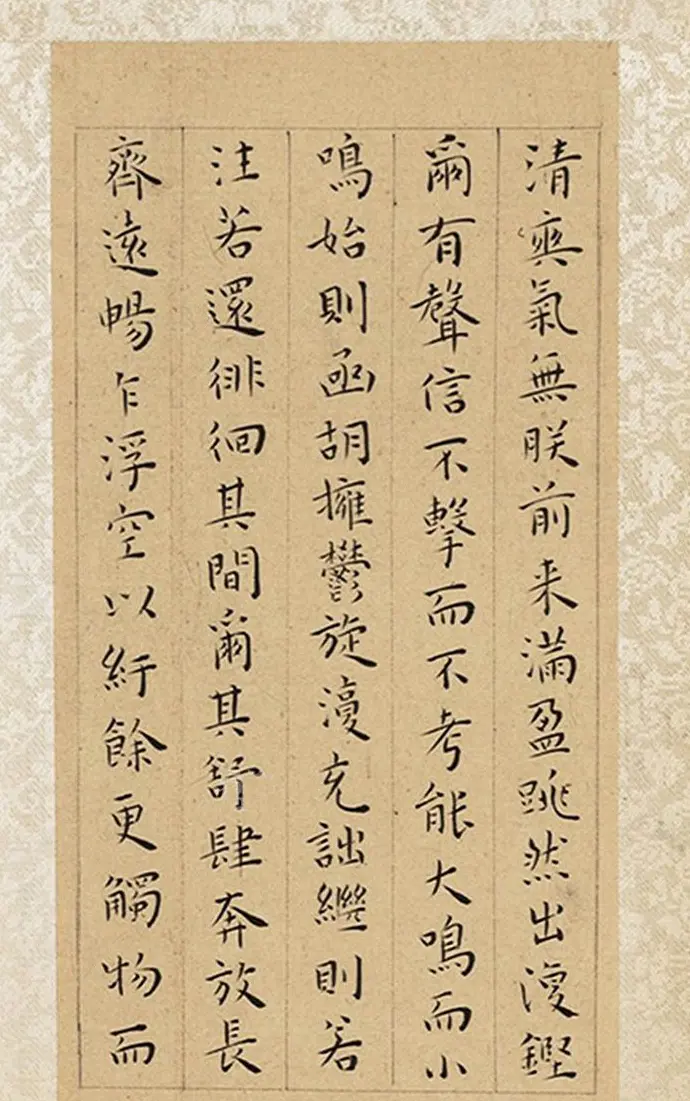 清爽氣無朕前来滿盈跳然出澓鏗
爾有聲信不擊而不考能大鳴而小
鳴始則函胡擁鬱旋澓充詘繼則若
注若還徘徊其間爾其舒肆奔放長
齊遠暢乍浮空以紆餘更觸物而